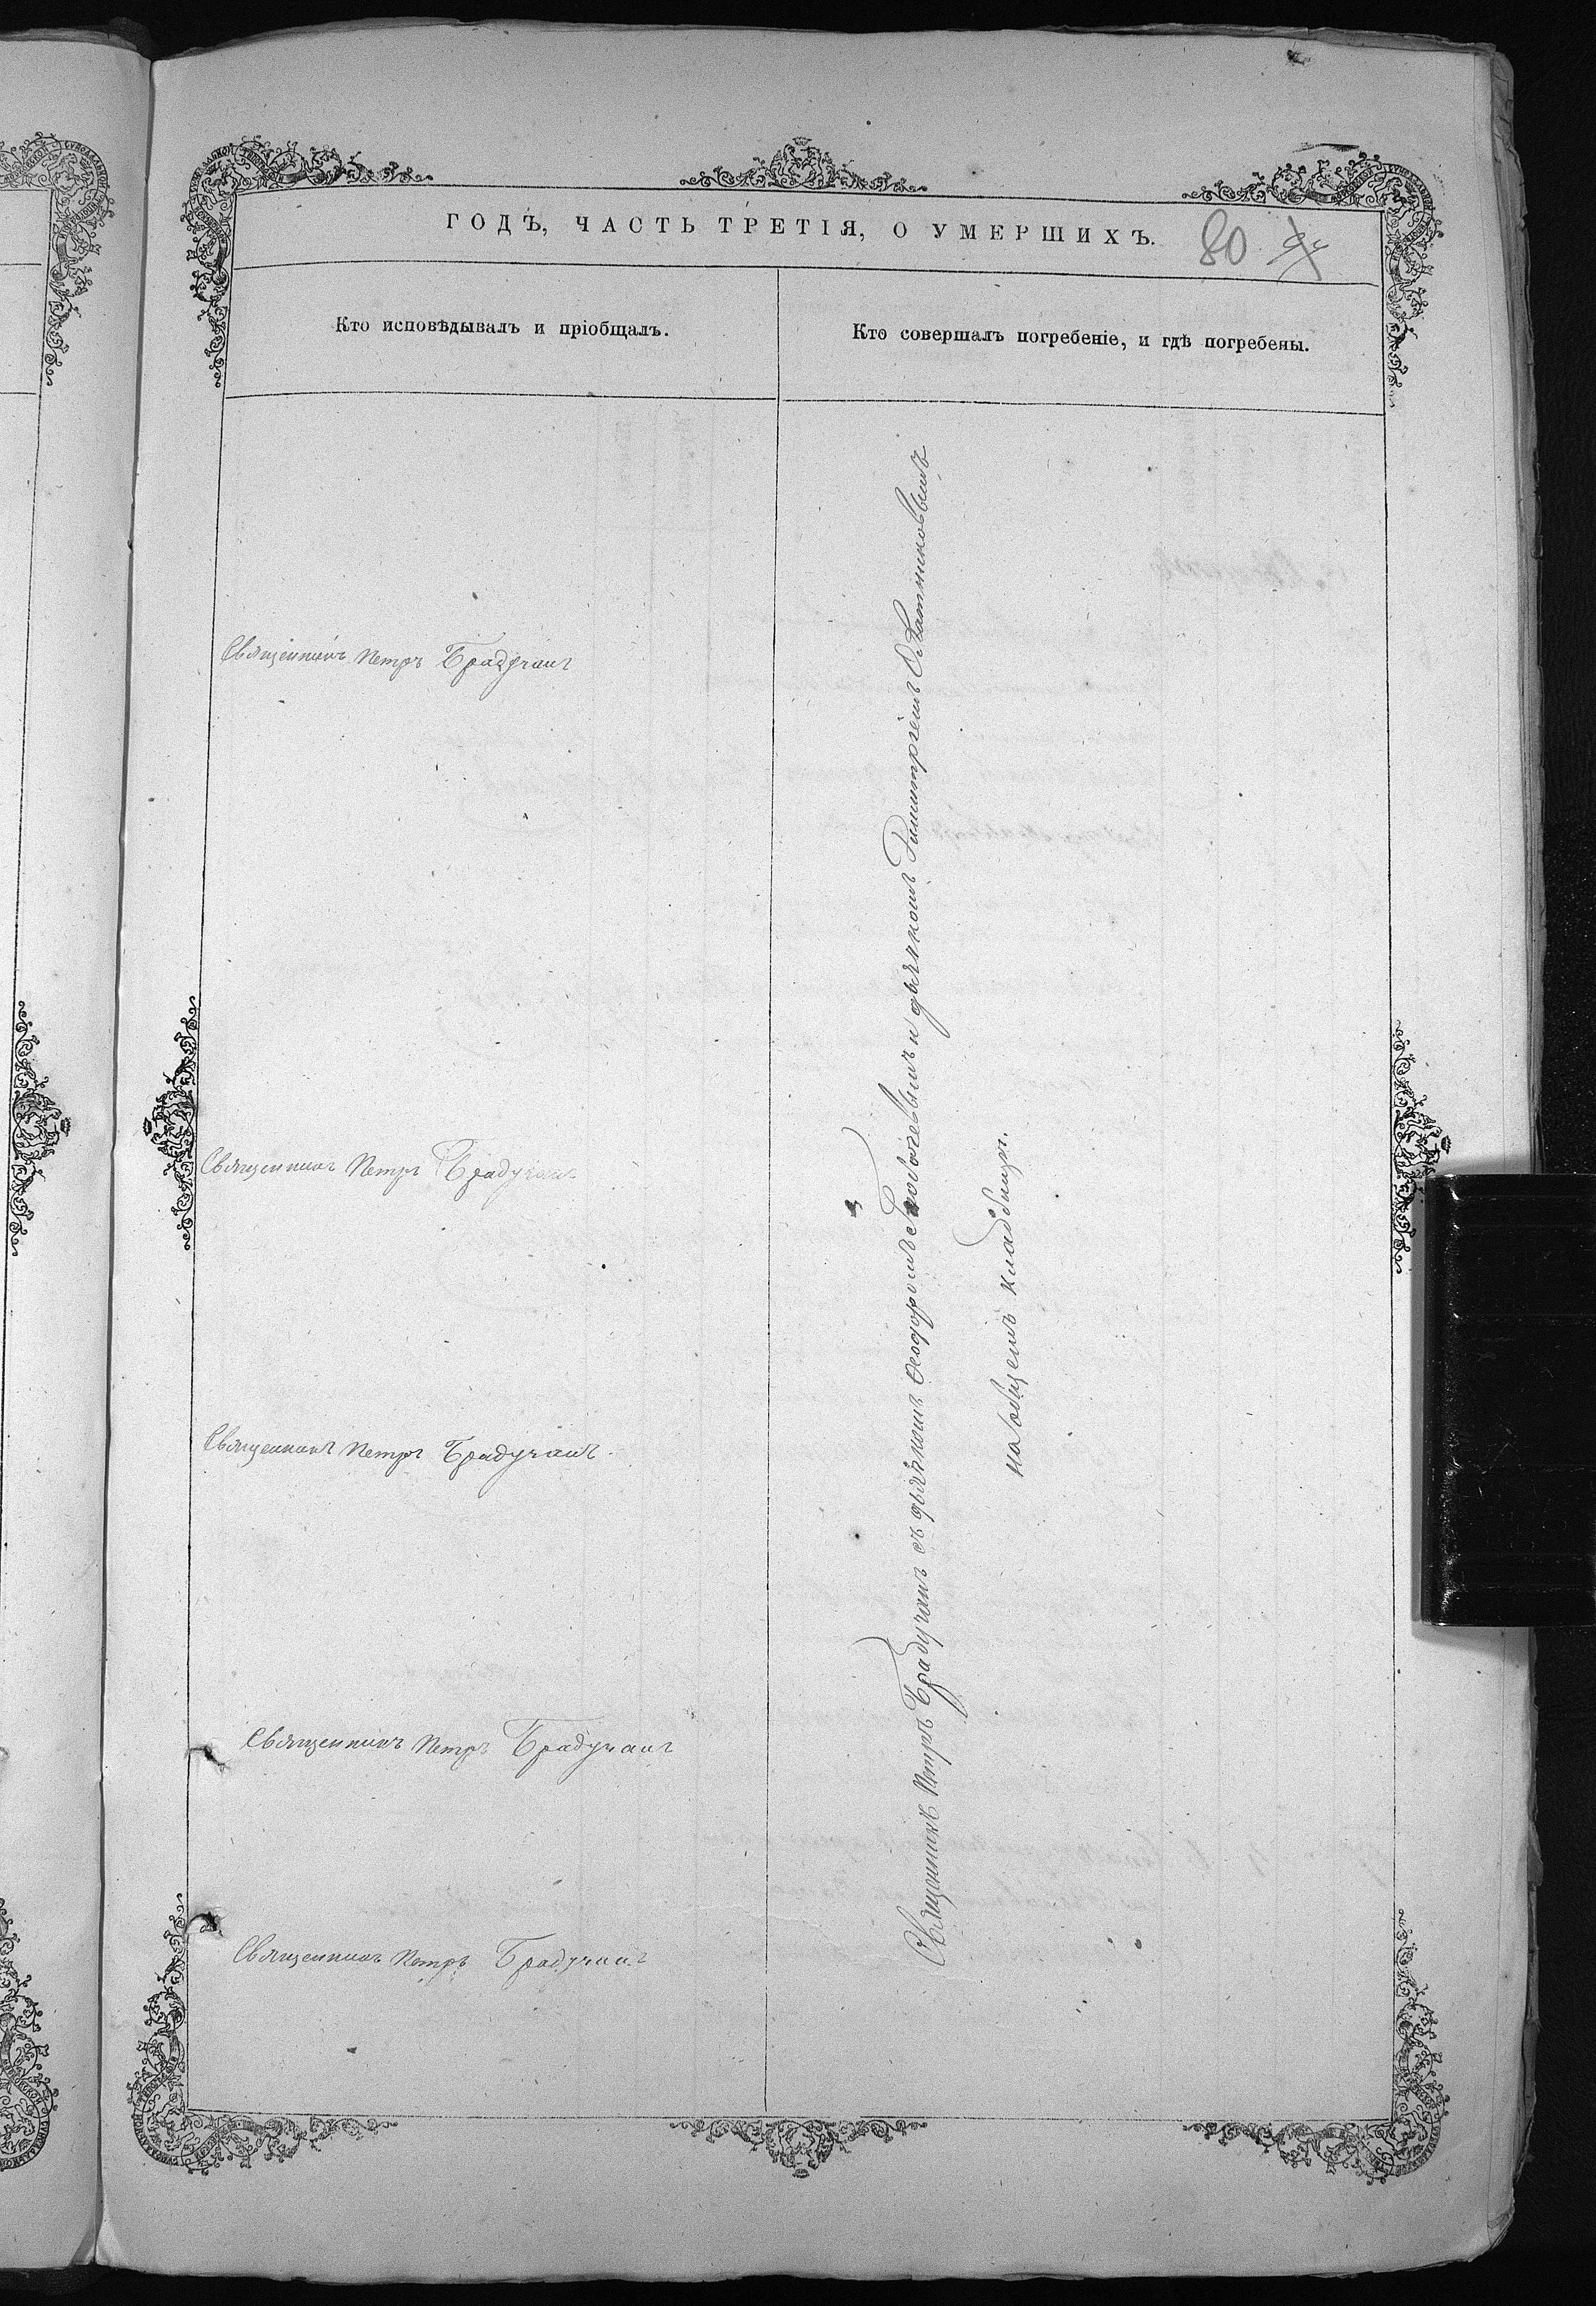 ГОДЪ, ЧАСТЬ ТРЕТІЯ, О УМЕРШИХЪ.
80
Кто исповѣдывалъ и пріобщалъ.
Кто совершалъ погребеніе, и гдѣ погребены.
Священникъ Петръ Брадучанъ
Священникъ Петръ Брадучанъ
Священникъ Петръ Брадучанъ
Священникъ Петръ Брадучанъ
Священникъ Петръ Брадучанъ
Священникъ Петръ Брадучанъ съ дьячкомъ Ѳеодоромъ и дьячкомъ Димитріемъ
на общемъ кладбищѣ.